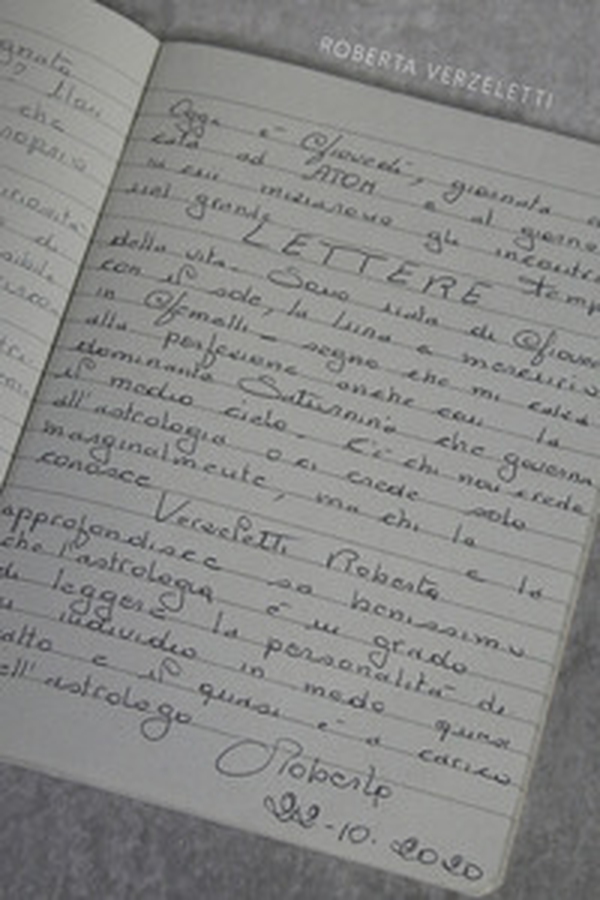 ROBERTA VERZELETTI
che
Oggi è Giovedì, giornata
ad ATOM e al giorno
in cui inizieremo gli incontri
nel grande
LETTERE
della vita. Sono nata di Giove
con il sole, la luna e mercurio
in Gemelli - segno che mi calza
alla perfezione anche con la
dominante Saturnina che governa
il medio cielo. C'è chi non crede
all'astrologia o ci crede solo
marginalmente, ma chi la
conosce e la
Verzeletti Roberta
approfondisce sa benissimo
che l'astrologia è in grado
di leggere la personalità di
un individuo in modo quasi
esatto e il quasi è a carico
dell'astrologo
Roberta
22-10-2020